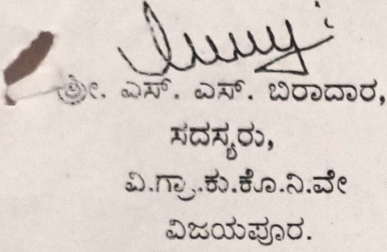 ಶ್ರೀ. ಎಸ್. ಎಸ್. ಬಿರಾದಾರ,
ಸದಸ್ಯರು,
ವಿ.ಗ್ರಾ.ಕು.ಕೊ.ನಿ.ವೇ
ವಿಜಯಪೂರ.